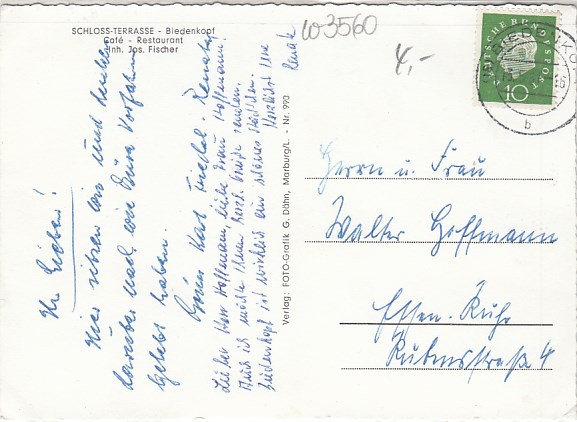 SCHLOSS-TERRASSE - Biedenkopf
Café - Restaurant
Inh. Jos. Fischer
W3560
4,-
DEUTSCHE BUNDESPOST
10
b
Ihr Lieben!
Hier sitzen wir und denken
darüber nach, wie Eure Vorfahren
gelebt haben.
Eure Friedel. Renate
Lieber Herr Hoffmann, liebe Frau Hoffmann!
Auch ich möchte Ihnen herzl. Grüße senden.
Biedenkopf ist wirklich ein schönes Städtchen.
Herzlichst Ihre
Renate
Verlag: FOTO-Grafik G. Dähn, Marburg/L. - Nr. 990
Herrn u. Frau
Walter Hoffmann
Essen-Ruhr
Rubensstraße 4